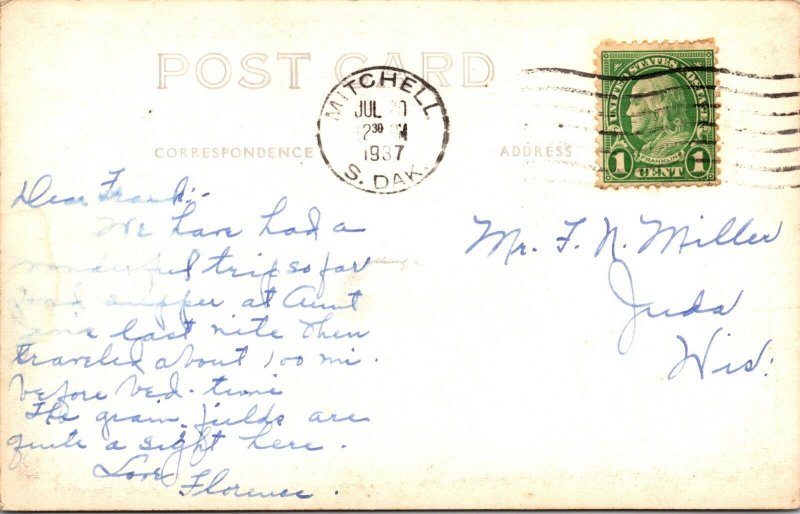 POST CARD
MITCHELL
JUL 20
1937
S. DAK.
UNITED STATES POSTAGE
FRANKLIN
1 CENT 1
CORRESPONDENCE
ADDRESS
Dear Frank:-
We have had a
wonderful trip so far
good supper at Aunt
last nite then
traveled about 100 mi.
before bed-time
The grain fields are
quite a sight here.
Love
Florence.
Mr. F. N. Miller
Juda
Wis.